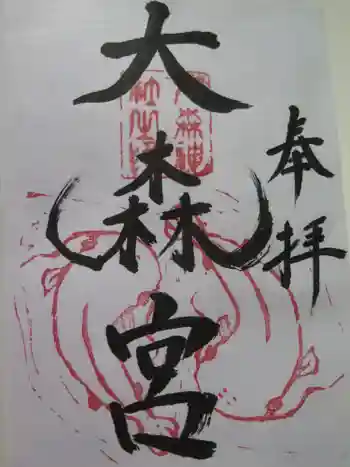 奉拝
大森宮